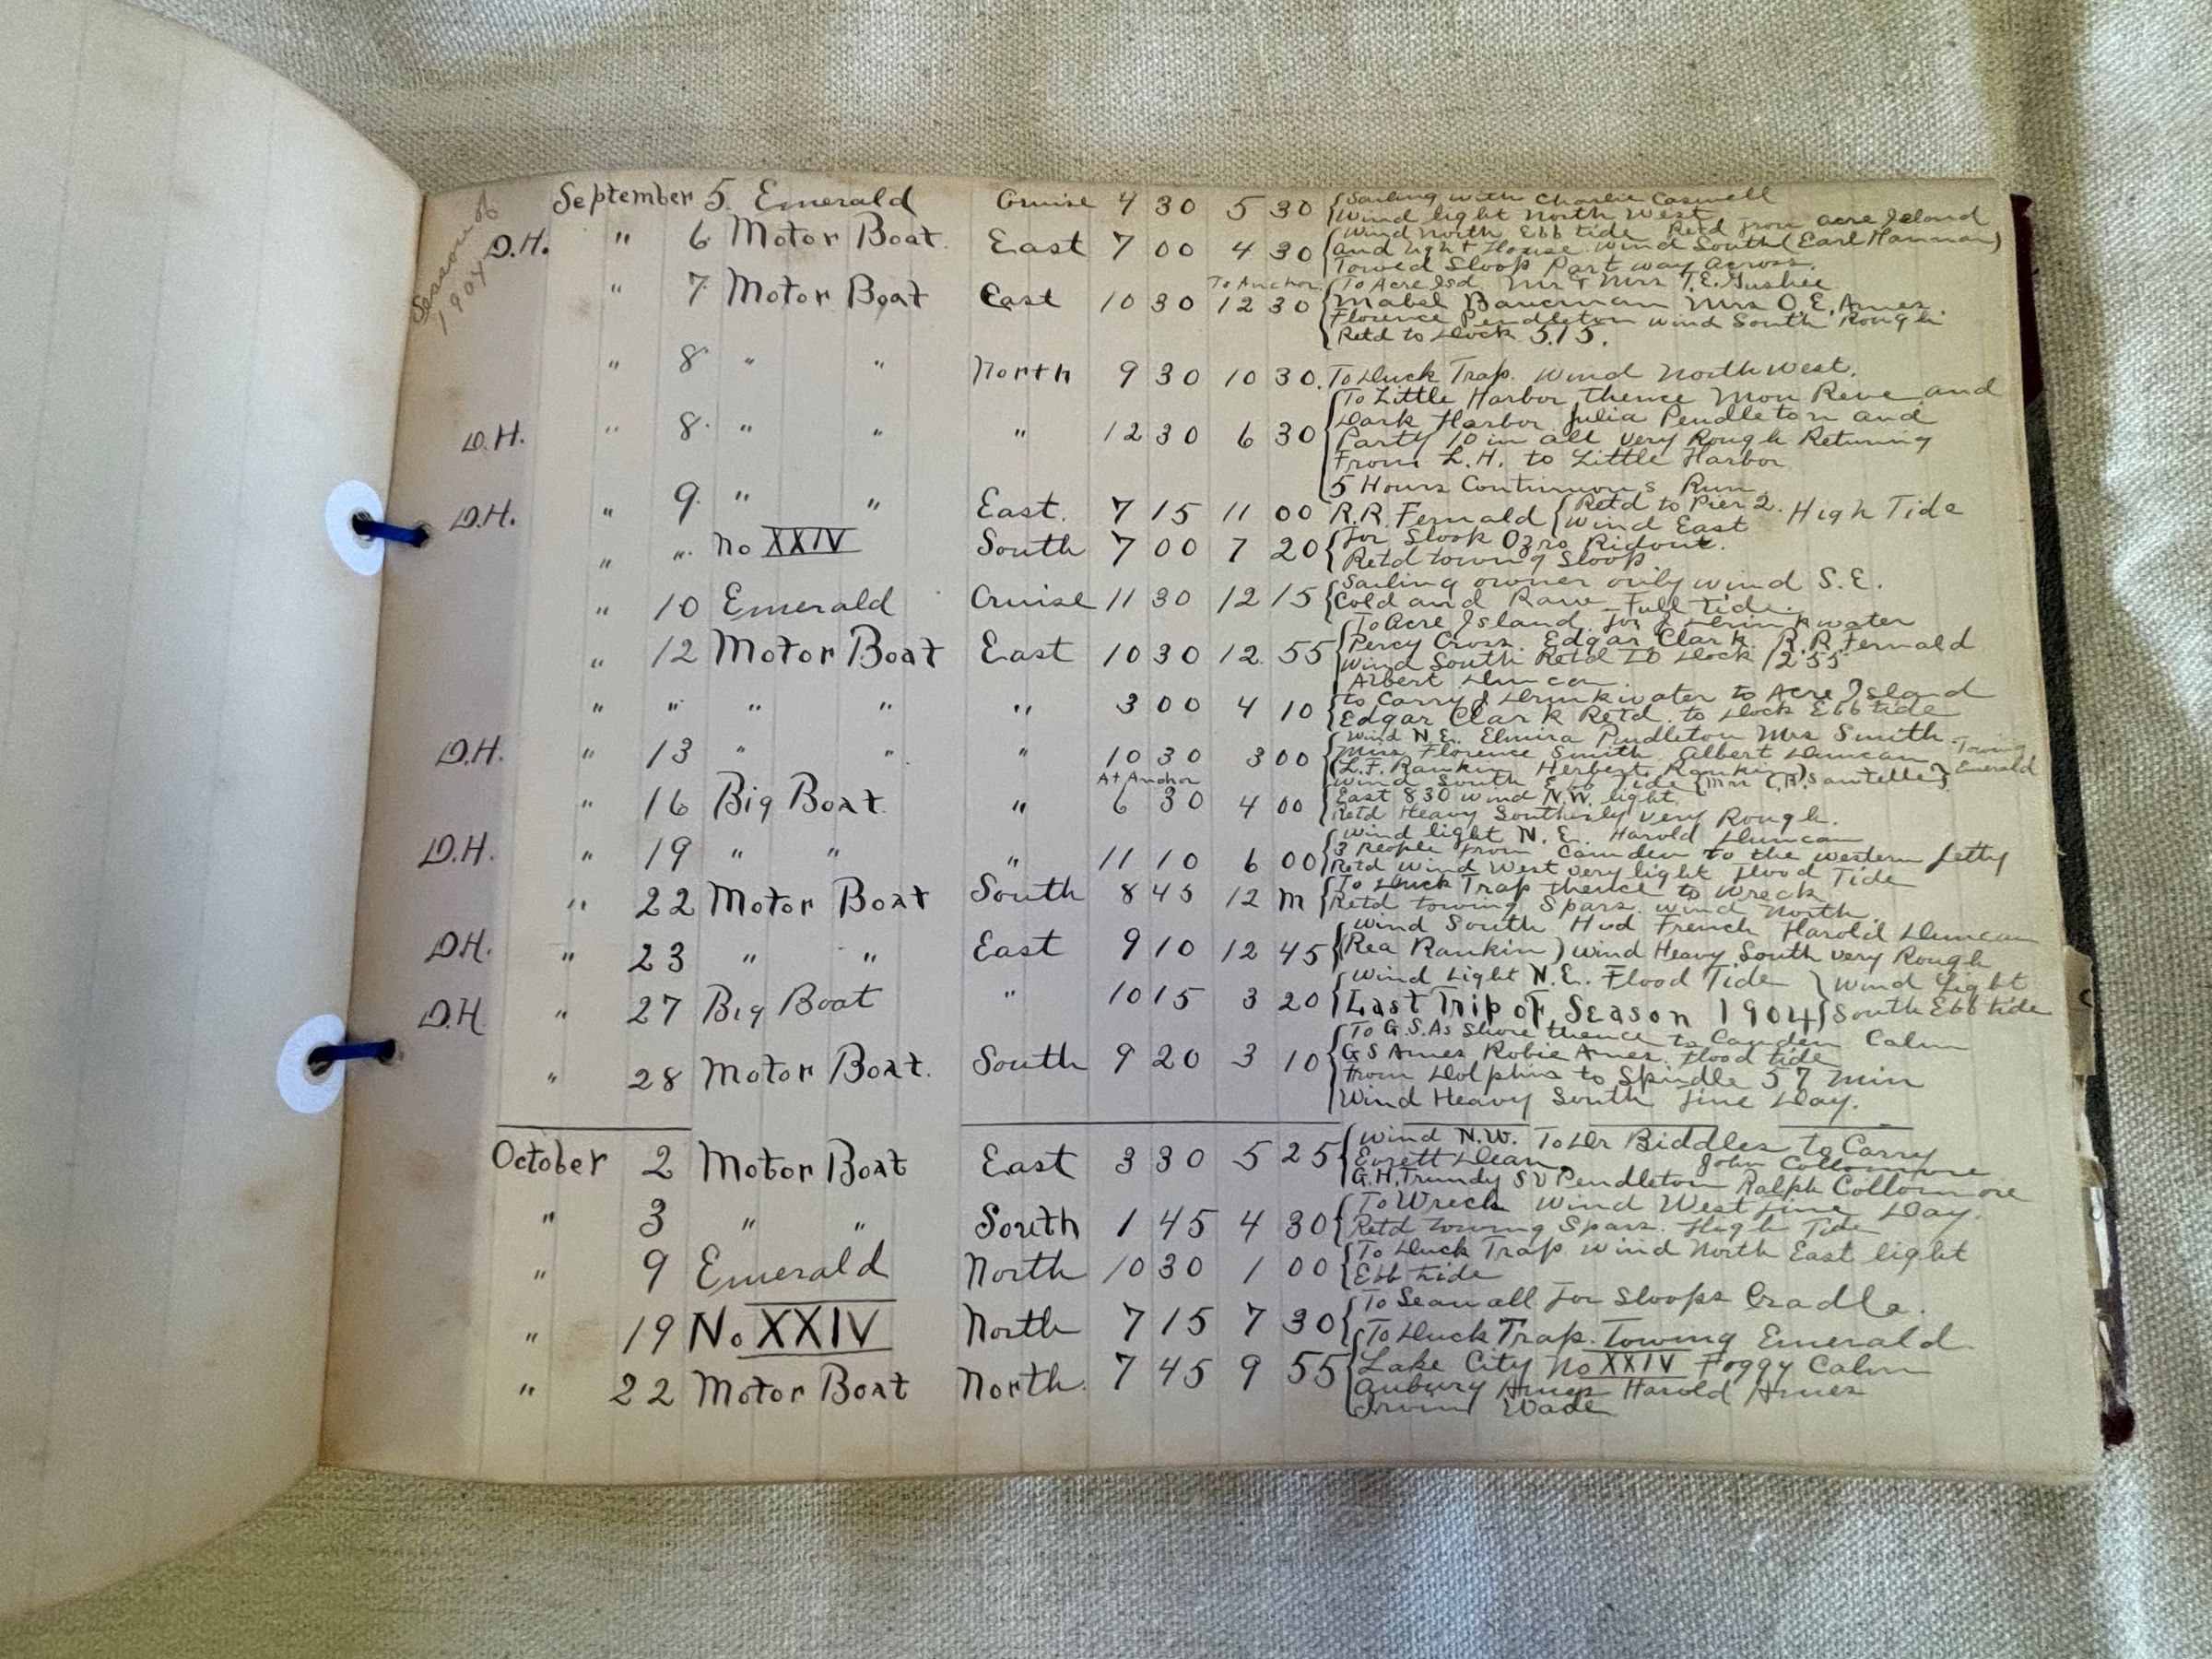 Season of
1904
September 5. Emerald Cruise 4 30 5 30 Sailing with Charlie Caswell
Wind light North West
D.H. " 6 Motor Boat. East 7 00 4 30 Wind North Ebb tide Retd from Acre Island
and Light House Wind South (Earl Hannan)
Towed Sloop Part way Across.
" 7. Motor Boat East 10 30 To Anchor 12 30 To Acre Isd Mr & Mrs T.E. Gushee
Mabel Mrs O.E. Ames.
Florence Pendleton Wind South Rough
Retd to Dock 5.15.
" 8 " " North 9 30 10 30. To Duck Trap. Wind North West.
D.H. " 8. " " " 12 30 6 30 To Little Harbor thence Mon Reve and
Dark Harbor Julia Pendleton and
Party 10 in all very Rough Returning
From L.H. to Little Harbor
5 Hours Continuous Run
D.H. " 9. " " East. 7 15 11 00 R.R. Fernald Retd to Pier 2. High Tide
Wind East
" " No XXIV South 7 00 7 20 For Sloop Ozro Ridout.
Retd towing Sloop
" 10 Emerald Cruise 11 30 12 15 Sailing owner only wind S.E.
Cold and Raw Full tide.
" 12 Motor Boat East 10 30 12 55 To Acre Island for J Drinkwater
Percy Cross. Edgar Clark. R.R. Fernald
Wind South Retd to Dock 12 55
Albert Duncan.
" " " " " 3 00 4 10 to Carry J Drinkwater to Acre Island
Edgar Clark Retd. to Dock Ebb tide
D.H. " 13 " " " 10 30 3 00 Wind N.E. Elmira Pendleton Mrs Smith.
Miss Florence Smith Albert Duncan Towing
L.F. Rankin Herbert Rankin Emerald
Wind South Ebb Tide (Mrs C.B. Sawtelle)
" 16 Big Boat " At Anchor 6 30 4 00 East 8 30 wind N.W. light.
Retd Heavy Southerly very Rough.
D.H. " 19 " " " 11 10 6 00 Wind light N.E. Harold Duncan
3 People from Camden to the western Jetty
Retd Wind West very light flood Tide
" 22 Motor Boat South 8 45 12 M To Duck Trap thence to Wreck
Retd towing Spars. wind North.
D.H. " 23 " " East 9 10 12 45 Wind South Hud French Harold Duncan
Rea Rankin) Wind Heavy South very Rough
D.H. " 27 Big Boat " 10 15 3 20 Wind Light N.E. Flood Tide Wind Light
Last Trip of Season 1904 South Ebb tide
" 28 Motor Boat. South 9 20 3 10 To G.S.As Shore thence to Camden Calm
G S Ames Robie Ames. flood tide
From Dolphins to Spindle 57 min
Wind Heavy South fine Day.
October 2 Motor Boat East 3 30 5 25 Wind N.W. To Dr Biddles to Carry
Evrett Dean, John Collommore
G.H. Trundy S D Pendleton Ralph Collommore
" 3 " " South 1 45 4 30 To Wreck Wind West fine Day.
Retd towing Spars. High Tide
" 9 Emerald North 10 30 1 00 To Duck Trap. wind North East light
Ebb tide
" 19 No XXIV North 7 15 7 30 To Seanall for Sloops Cradle.
" 22 Motor Boat North. 7 45 9 55 To Duck Trap. Towing Emerald
Lake City No XXIV Foggy Calm
Aubury Ames Harold Ames
Wade